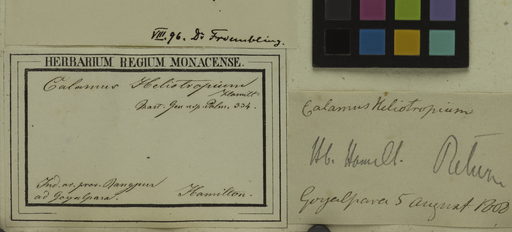 VIII. 96. Dr Troembling.
HERBARIUM REGIUM MONACENSE.
Calamus Heliotropium
Hamilt.
Mart. Gen. et sp. Palm. 334.
Ind. or. prov. Rangpur
ad Goyalpara.
Hamilton.
Calamus Heliotropium
Hb. Hamilt. Return
Goyalpara 5 August 1808